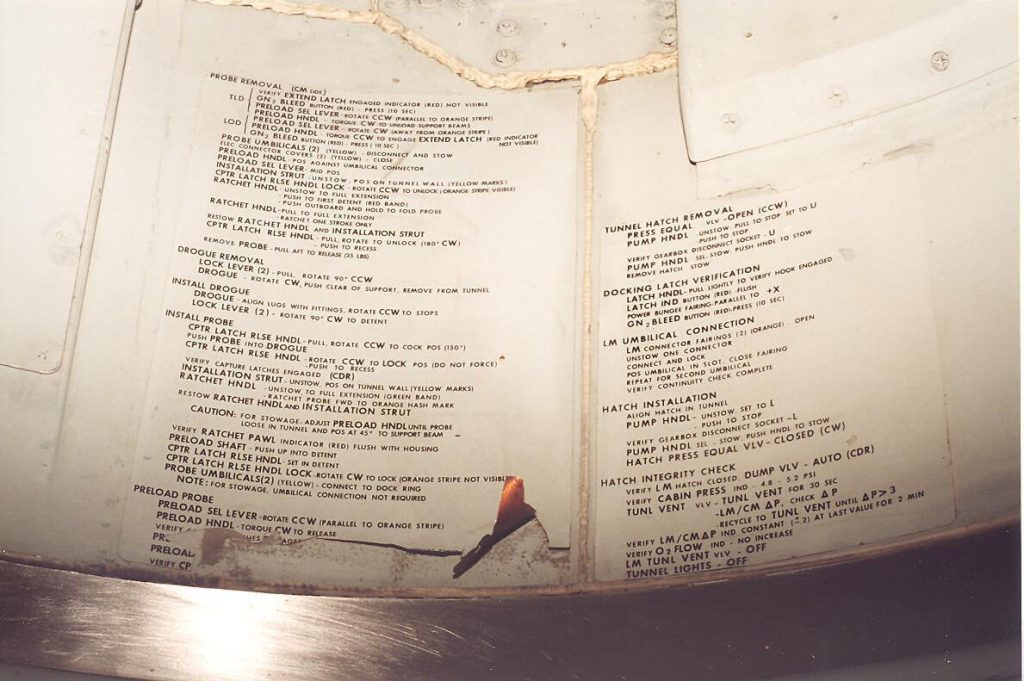 PROBE REMOVAL (CM SIDE)
VERIFY EXTEND LATCH ENGAGED INDICATOR (RED) NOT VISIBLE
TLD
GN2 BLEED BUTTON (RED) - PRESS (10 SEC)
PRELOAD SEL LEVER - ROTATE CCW (PARALLEL TO ORANGE STRIPE)
PRELOAD HNDL - TORQUE CW TO UNLOAD SUPPORT BEAMS
LOD
PRELOAD SEL LEVER - ROTATE CW (AWAY FROM ORANGE STRIPE)
PRELOAD HNDL - TORQUE CCW TO ENGAGE EXTEND LATCH (RED INDICATOR NOT VISIBLE)
GN2 BLEED BUTTON (RED) - PRESS (10 SEC)
PROBE UMBILICALS (2) (YELLOW) - DISCONNECT AND STOW
ELEC CONNECTOR COVERS (2) (YELLOW) - CLOSE
PRELOAD HNDL - POS AGAINST UMBILICAL CONNECTOR
PRELOAD SEL LEVER - MID POS
INSTALLATION STRUT - UNSTOW, POS ON TUNNEL WALL (YELLOW MARKS)
CPTR LATCH RLSE HNDL LOCK - ROTATE CCW TO UNLOCK (ORANGE STRIPE VISIBLE)
RATCHET HNDL - UNSTOW TO FULL EXTENSION
- PUSH TO FIRST DETENT (RED BAND)
- PUSH OUTBOARD AND HOLD TO FOLD PROBE
RATCHET HNDL - PULL TO FULL EXTENSION
- RATCHET ONE STROKE ONLY
RESTOW RATCHET HNDL AND INSTALLATION STRUT
CPTR LATCH RLSE HNDL - PULL, ROTATE TO UNLOCK (180° CW)
- PUSH TO RECESS
REMOVE PROBE - PULL AFT TO RELEASE (25 LBS)
DROGUE REMOVAL
LOCK LEVER (2) - PULL, ROTATE 90° CCW
DROGUE - ROTATE CW, PUSH CLEAR OF SUPPORT, REMOVE FROM TUNNEL
INSTALL DROGUE
DROGUE - ALIGN LUGS WITH FITTINGS, ROTATE CCW TO STOPS
LOCK LEVER (2) - ROTATE 90° CW TO DETENT
INSTALL PROBE
CPTR LATCH RLSE HNDL - PULL, ROTATE CCW TO COCK POS (150°)
PUSH PROBE INTO DROGUE
CPTR LATCH RLSE HNDL - ROTATE CCW TO LOCK POS (DO NOT FORCE)
- PUSH TO RECESS
VERIFY CAPTURE LATCHES ENGAGED (CDR)
INSTALLATION STRUT - UNSTOW, POS ON TUNNEL WALL (YELLOW MARKS)
RATCHET HNDL - UNSTOW TO FULL EXTENSION (GREEN BAND)
- RATCHET PROBE FWD TO ORANGE HASH MARK
RESTOW RATCHET HNDL AND INSTALLATION STRUT
CAUTION: FOR STOWAGE - ADJUST PRELOAD HNDL UNTIL PROBE
LOOSE IN TUNNEL AND POS AT 45° TO SUPPORT BEAM
VERIFY RATCHET PAWL INDICATOR (RED) FLUSH WITH HOUSING
PRELOAD SHAFT - PUSH UP INTO DETENT
CPTR LATCH RLSE HNDL - SET IN DETENT
CPTR LATCH RLSE HNDL LOCK - ROTATE CW TO LOCK (ORANGE STRIPE NOT VISIBLE)
PROBE UMBILICALS (2) (YELLOW) - CONNECT TO DOCK RING
NOTE: FOR STOWAGE, UMBILICAL CONNECTION NOT REQUIRED
PRELOAD PROBE
PRELOAD SEL LEVER - ROTATE CCW (PARALLEL TO ORANGE STRIPE)
PRELOAD HNDL - TORQUE CW TO RELEASE
VERIFY
PRELOAD
VERIFY CP
TUNNEL HATCH REMOVAL
PRESS EQUAL VLV - OPEN (CCW)
PUMP HNDL - UNSTOW, PULL TO STOP SET TO U
- PUSH TO STOP
VERIFY GEARBOX DISCONNECT SOCKET - U
PUMP HNDL SEL - STOW, PUSH HNDL TO STOW
REMOVE HATCH STOW
DOCKING LATCH VERIFICATION
LATCH HNDL - PULL LIGHTLY TO VERIFY HOOK ENGAGED
LATCH IND BUTTON (RED) - FLUSH
POWER BUNGEE FAIRING - PARALLEL TO +X
GN2 BLEED BUTTON (RED) - PRESS (10 SEC)
LM UMBILICAL CONNECTION
LM CONNECTOR FAIRINGS (2) (ORANGE) - OPEN
UNSTOW ONE CONNECTOR
CONNECT AND LOCK
POS UMBILICAL IN SLOT, CLOSE FAIRING
REPEAT FOR SECOND UMBILICAL
VERIFY CONTINUITY CHECK COMPLETE
HATCH INSTALLATION
ALIGN HATCH IN TUNNEL
PUMP HNDL - UNSTOW SET TO L
- PUSH TO STOP
VERIFY GEARBOX DISCONNECT SOCKET - L
PUMP HNDL SEL - STOW, PUSH HNDL TO STOW
HATCH PRESS EQUAL VLV - CLOSED (CW)
HATCH INTEGRITY CHECK
VERIFY LM HATCH CLOSED, DUMP VLV - AUTO (CDR)
VERIFY CABIN PRESS IND - 4.8 - 5.2 PSI
TUNL VENT VLV - TUNL VENT FOR 30 SEC
- LM/CM ΔP, CHECK ΔP
- RECYCLE TO TUNL VENT UNTIL ΔP>3
VERIFY LM/CM ΔP IND CONSTANT (±.2) AT LAST VALUE FOR 2 MIN
VERIFY O2 FLOW IND - NO INCREASE
LM TUNL VENT VLV - OFF
TUNNEL LIGHTS - OFF